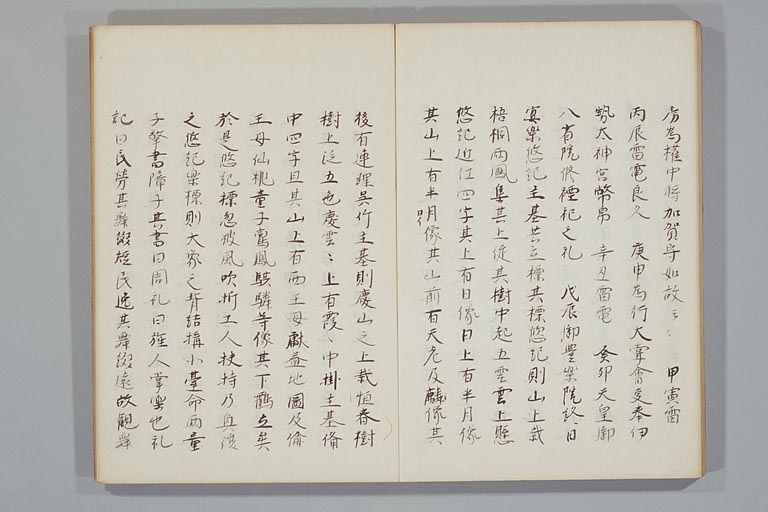 房為権中将加賀守如故云々 甲寅雷
丙辰雷電良久 庚申為行大掌會変奉伊
勢大神宮幣帛 辛丑雷電 癸卯天皇御
八省院修禋祀之礼 戊辰御豊樂院終日
宴樂悠記主基共立標其標悠紀則山上栽
梧桐両鳳集其上従其樹中起五雲雲上懸
悠紀近江四字其上有日像日上有半月像
其山上有半月像其山前有天老及麟像其
後有連理呉竹主基則慶山之上栽恒春樹
樹上泛五色慶雲〻上有霞〻中掛主基備
中四字且其山上有西王母献益地圖及偷
王母仙桃童子鸞鳳騏驎等像其下鶴立矣
於是悠紀標忽被風吹折工人扶持乃興復
之悠紀樂標則大象之背結構小臺命両童
子擎書障子其書曰周礼曰旄人掌樂也礼
記曰民勞其舞綴短民逸其舞綴遠故觀舞